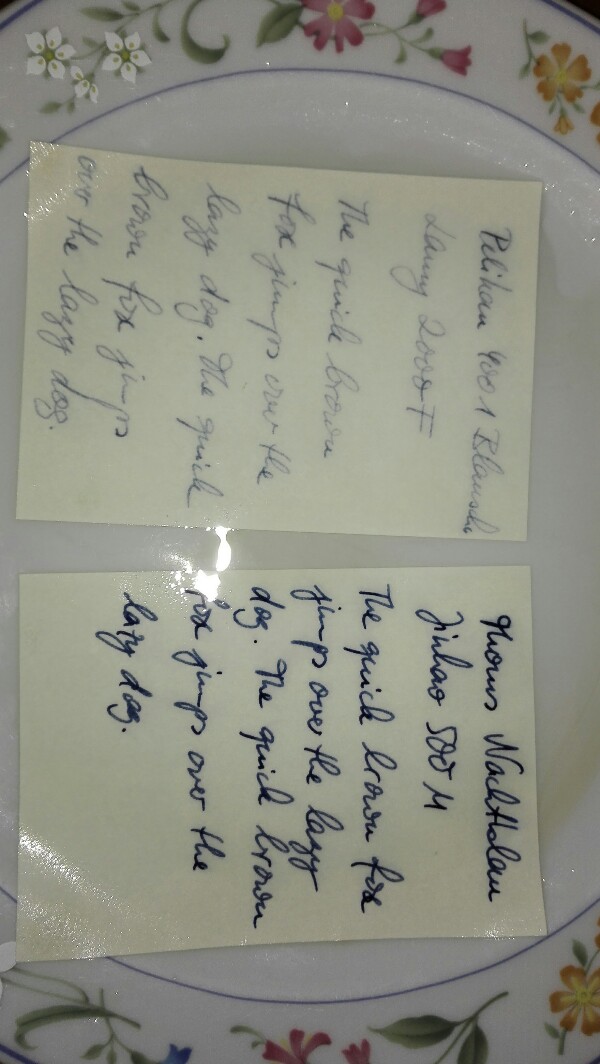 Pelikan 4001 Blauschw
Lamy 2000 F
The quick brown
fox jumps over the
lazy dog. The quick
brown fox jumps
over the lazy dog.
Thoms Nachtblau
Jinhao 500 M
The quick brown fox
jumps over the lazy
dog. The quick brown
fox jumps over the
lazy dog.